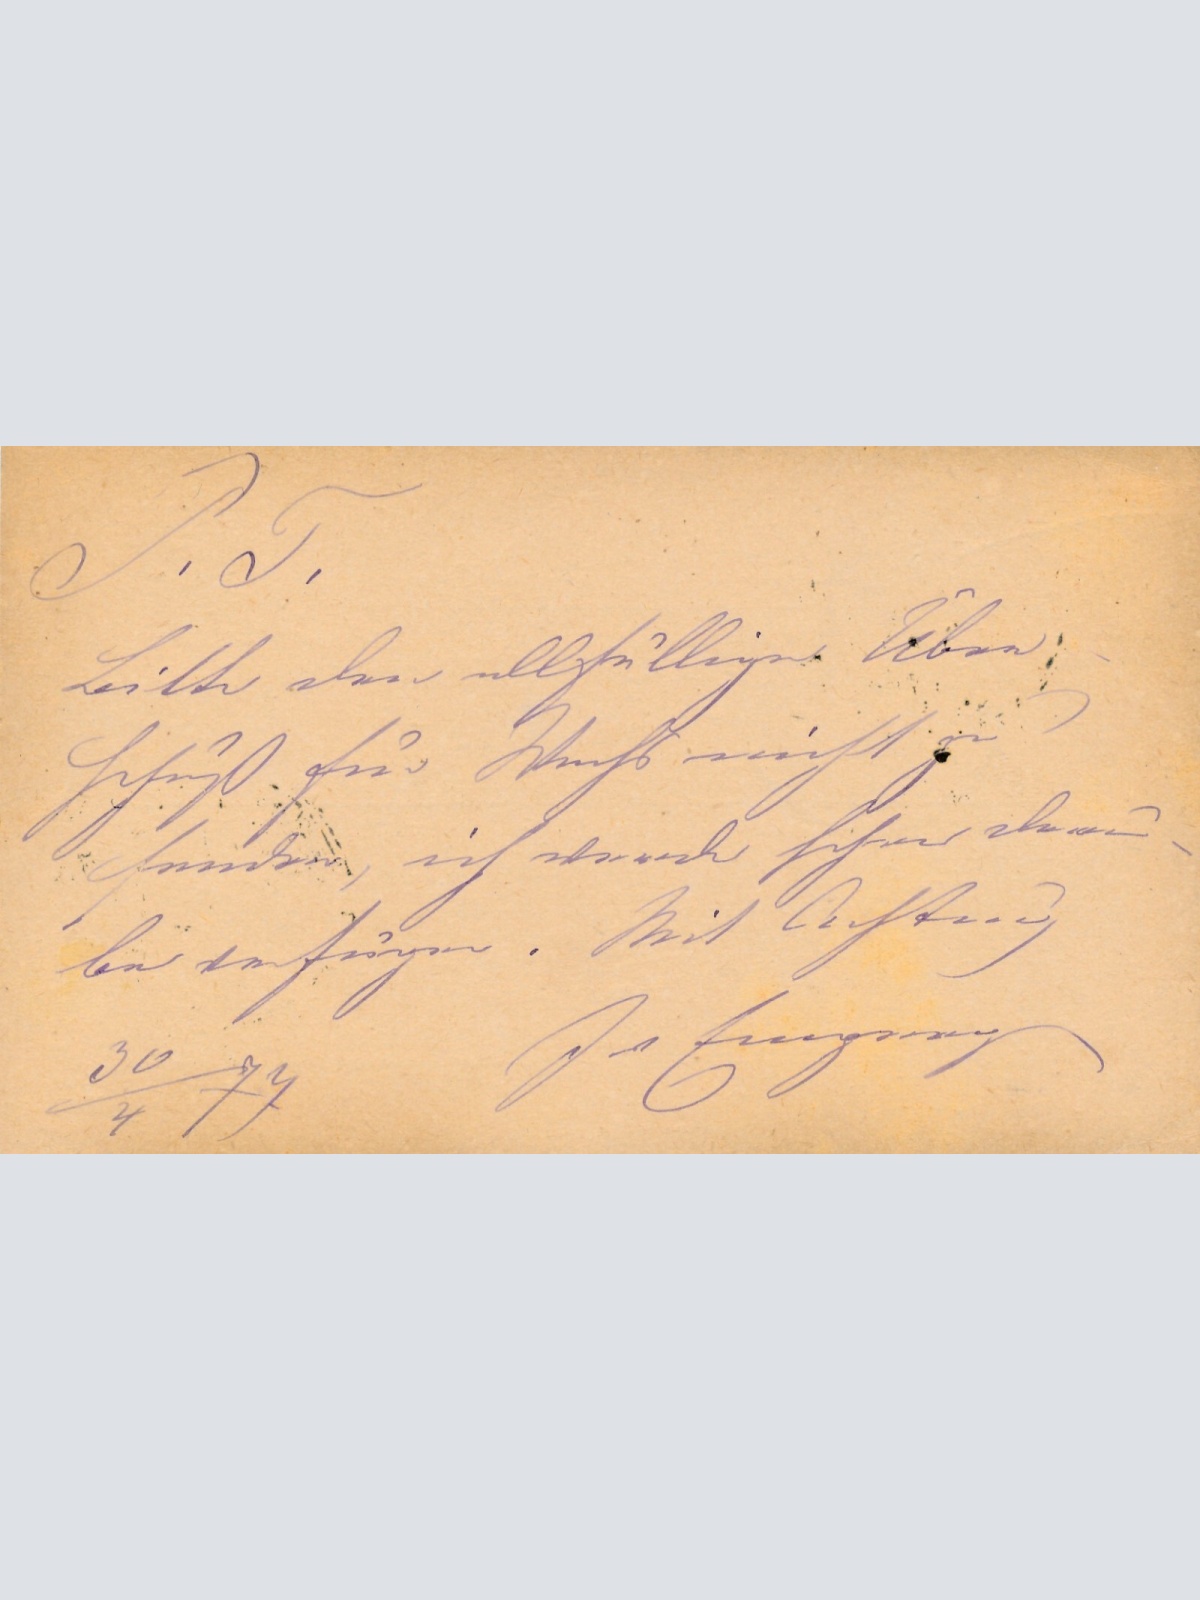 P. T.
Bitte den allfälligen Über-
schuß für Wachs nicht zu
senden, ich werde schon darü-
ber verfügen. Mit Achtung
30/4 77